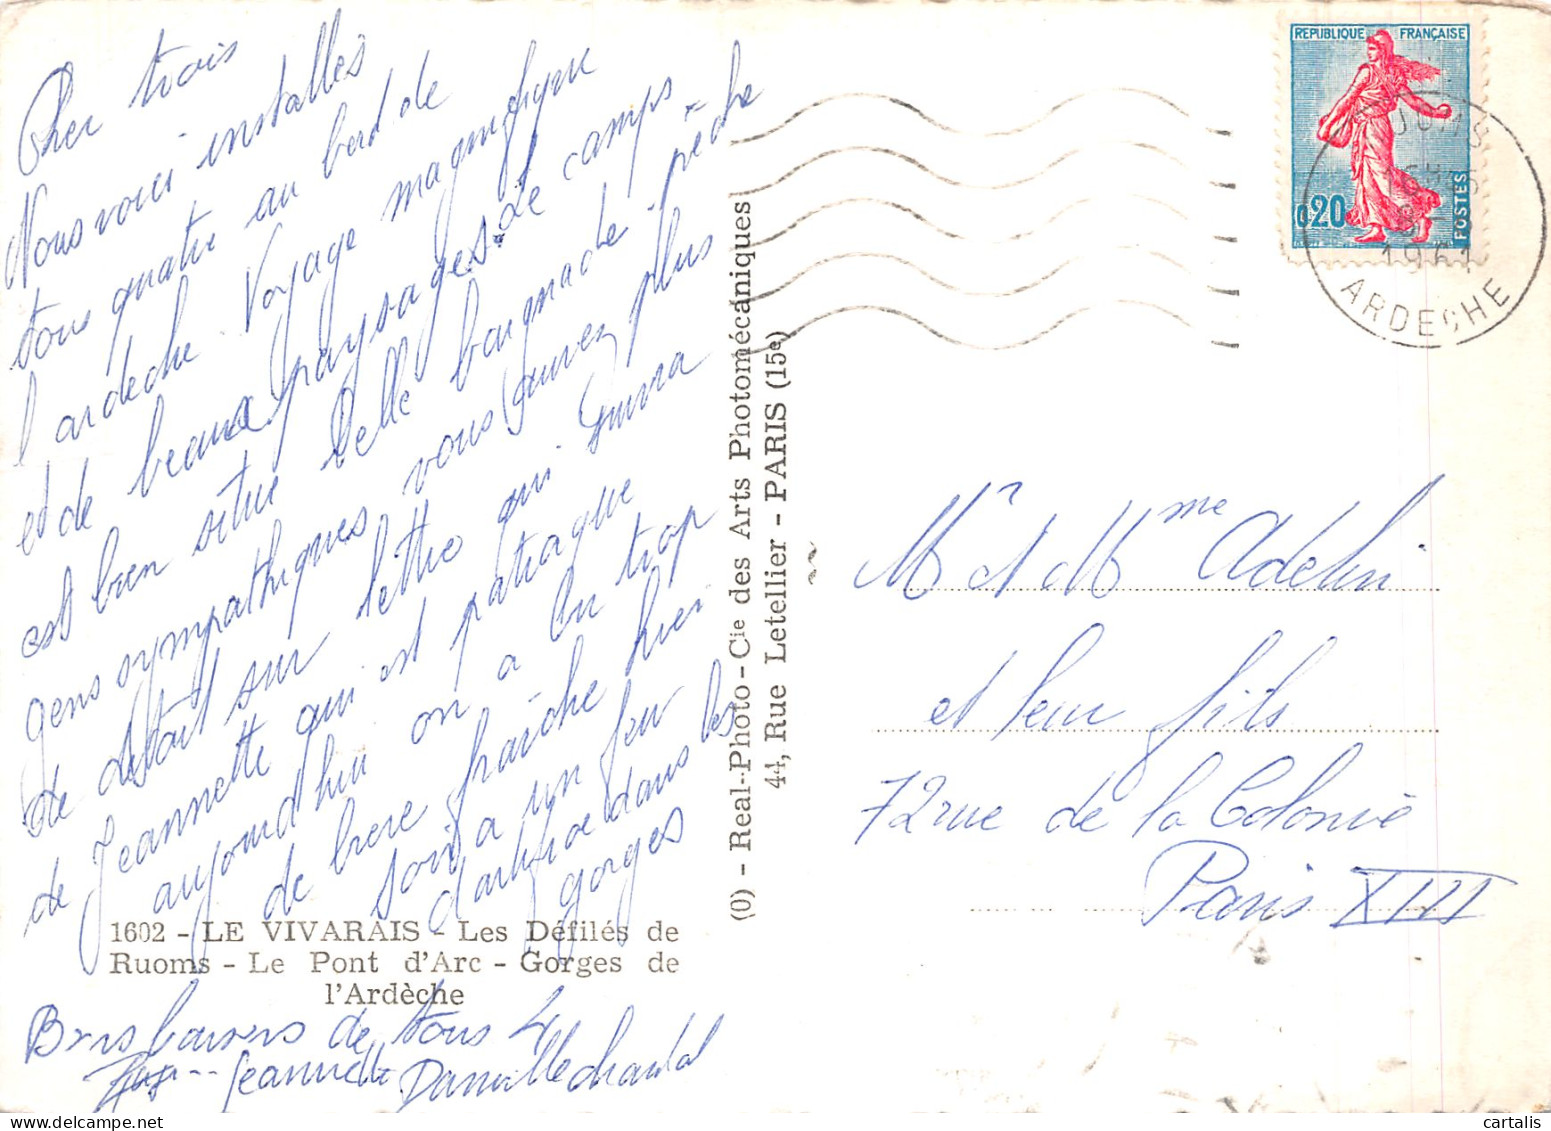 Cher trois
Nous voici installés
tous quatre au bord de
l'ardeche. Voyage magnifique
et de beaux paysages. Le camps
est bien situé belle baignade - pêche
gens sympathiques vous saurez plus
de détail sur lettre qui suivra
de Jeannette qui est patraque
aujourd'hui on a bu trop
de biere fraîche hier
soir a un feu
d'artifice dans les
gorges
1602 - LE VIVARAIS - Les Défilés de
Ruoms - Le Pont d'Arc - Gorges de
l'Ardèche
Bons baisers de tous 4
Jeannette Danielle chantal
(O) - Real-Photo - Cie des Arts Photomécaniques
44, Rue Letellier - PARIS (15e)
REPUBLIQUE FRANÇAISE
0,20
POSTES
1961
ARDECHE
Mr et Mme Adelin
et leur fils
72 rue de la Colonie
Paris XIII
cartalis